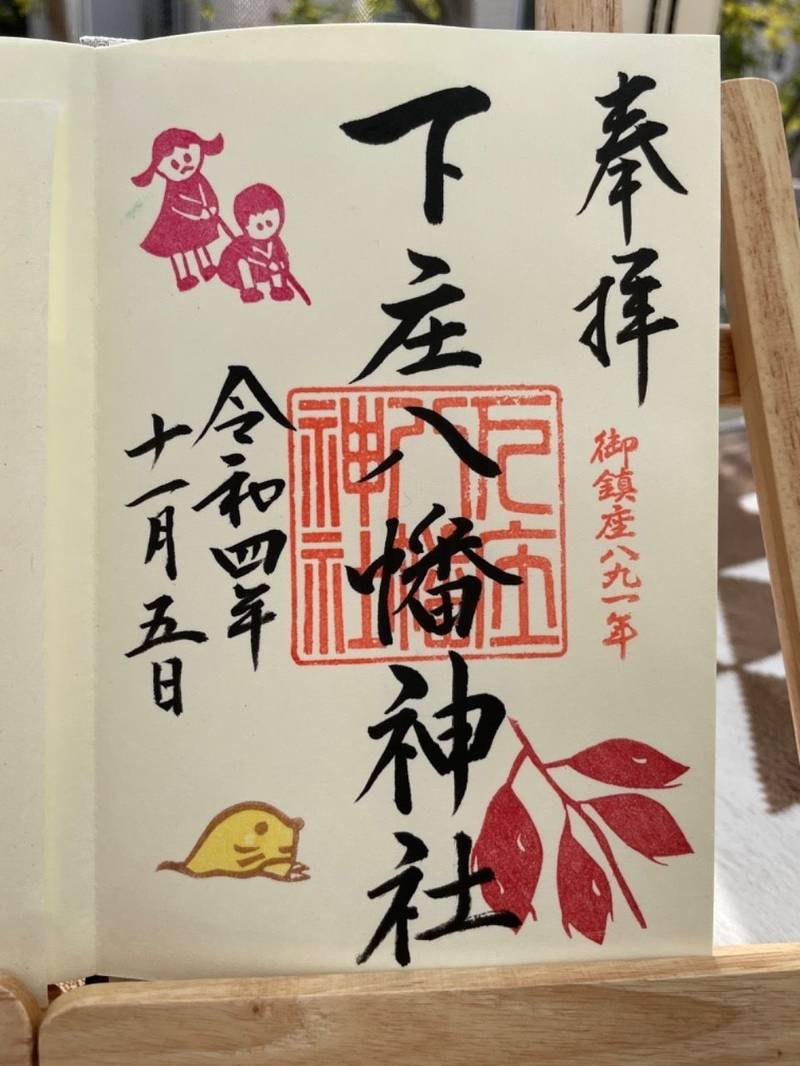 奉拝
御鎮座八九一年
下庄八幡神社
下庄
八幡
神社
令和四年
十一月五日